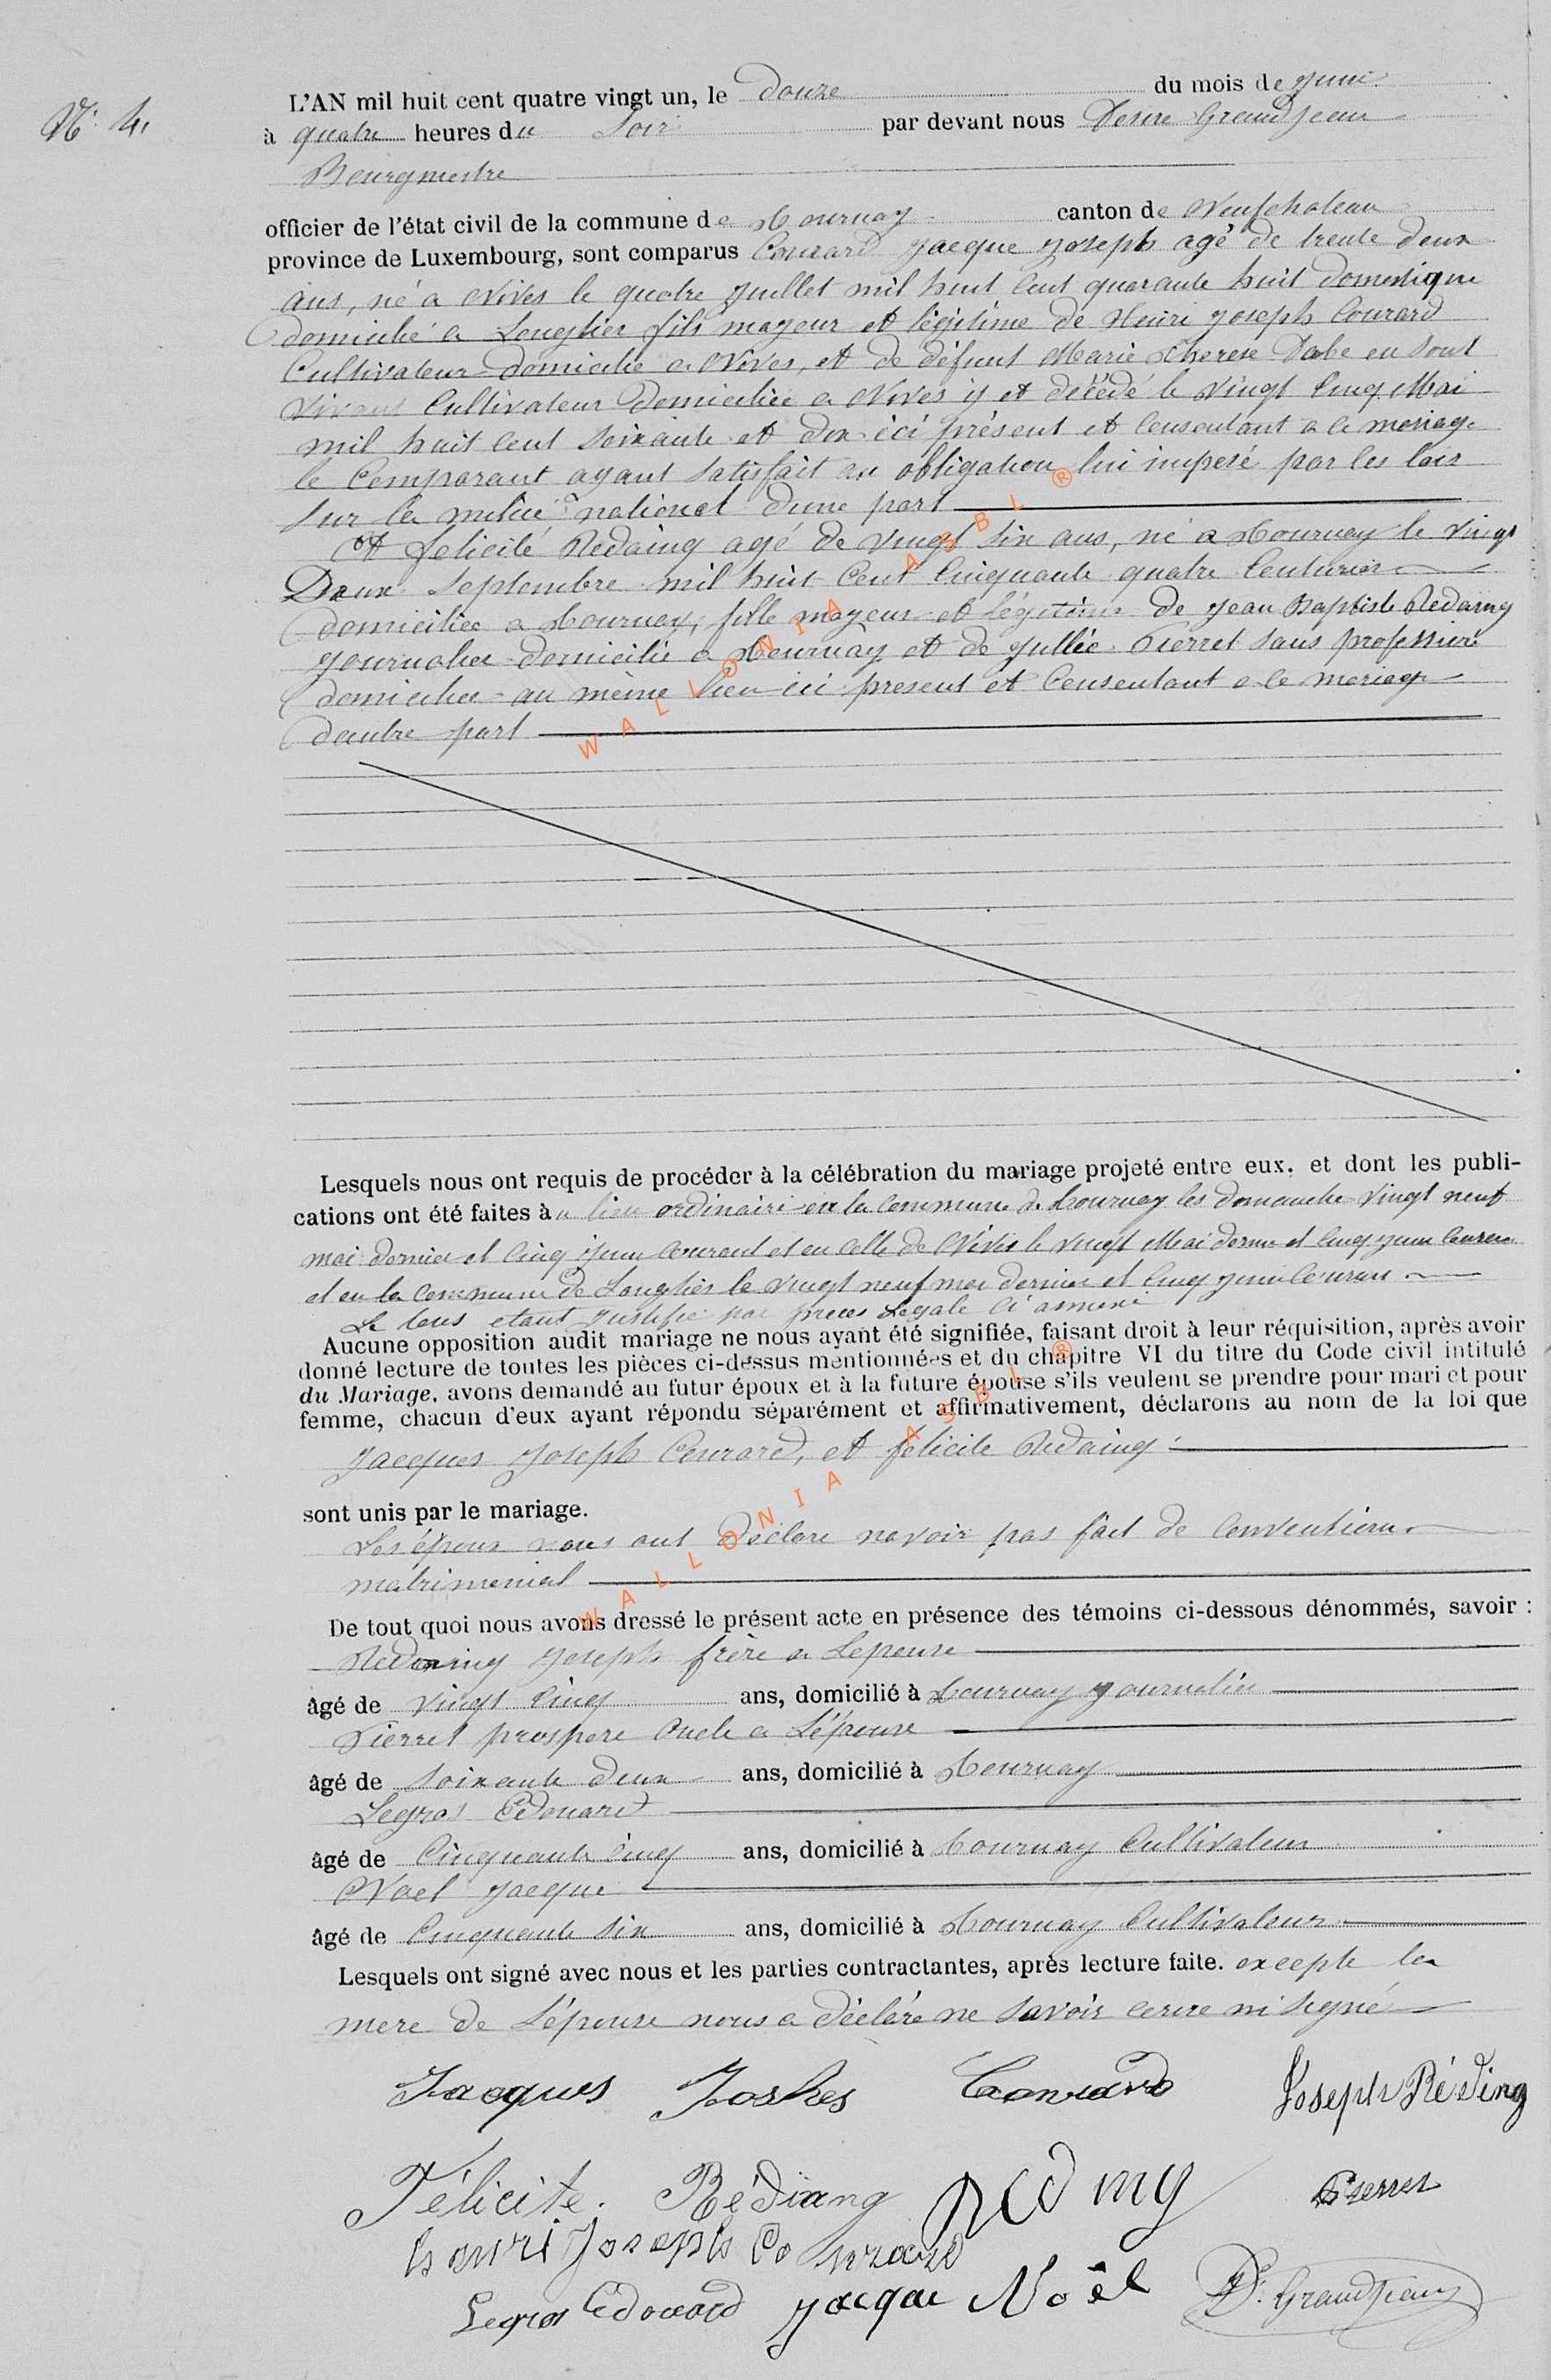 N° 4.
L'AN mil huit cent quatre vingt un, le douze du mois de juin
à quatre heures du Soir par devant nous Desire Grandjean
Bourgmestre
officier de l'état civil de la commune de Tournay canton de Neufchateau
province de Luxembourg, sont comparus Courard Jacque Joseph agé de trente deux
ans, né a Nives le quatre Juillet mil huit Cent quarante huit domestique
domicilié a Longlier fils mayeur et légitime de Henri Joseph Courard
Cultivateur domicilie a Nives, et de défunt Marie Therese Dabe en Sont
Vivant Cultivateur Domiciliée a Nives y et décédé le Vingt Cinq Mai
mil huit Cent Soixante et dix ici présent et Consentant a ce mariage
le Comparant ayant Satisfait au obligation lui imposé par les lois
Sur la milice national dune part
et Felicité Redaing agé de vingt Six ans, né a Tournay le Vingt
Deux Septembre mil huit Cent Cinquante quatre Couturier
domiciliée a Tournay, fille mayeur et légitime de Jean Baptiste Redaing
Journalier domicilié a Tournay et de Jullie Pierret Sans profession
domiciliee au même lieu ici présent et Consentant a ce mariage
dautre part
Lesquels nous ont requis de procéder à la célébration du mariage projeté entre eux. et dont les publi-
cations ont été faites au lieu ordinaire en la Commune de Tournay les domanche Vingt neuf
mai dernier et Cinq juin Courant et en Celle de Nives le vingt Mai dernier et Cinq juin Courant
et en la Commune de Longlier le Vingt neuf mai dernier et Cinq juin Courant
Le tous etant Justifie par pieces Légale Ci annexé
Aucune opposition audit mariage ne nous ayant été signifiée, faisant droit à leur réquisition, après avoir
donné lecture de toutes les pièces ci-dessus mentionnées et du chapitre VI du titre du Code civil intitulé
du Mariage, avons demandé au futur époux et à la future épouse s'ils veulent se prendre pour mari et pour
femme, chacun d'eux ayant répondu séparément et affirmativement, déclarons au nom de la loi que
Jacques Joseph Courard, et félicite Redaing
sont unis par le mariage.
Les époux nous ont Déclare navoir pas fait de Convention
matrimonial
De tout quoi nous avons dressé le présent acte en présence des témoins ci-dessous dénommés, savoir :
Redaing Joseph frère a Lepouse
âgé de Vingt Cinq ans, domicilié à Tournay journalier
Pierret prospere Oncle a L'épouse
âgé de Soixante deux ans, domicilié à Tournay
Legros Edouard
âgé de Cinquante Cinq ans, domicilié à Tournay Cultivateur
Noel Jacque
âgé de Cinquante Six ans, domicilié à Tournay Cultivateur
Lesquels ont signé avec nous et les parties contractantes, après lecture faite. excepte la
mere de L'épouse nous a déclaré ne Savoir écrire ni Signé
Jacques Joshes Conrard Joseph Réding
Félicite. Rédiang Reding Pierret
henri Joseph Conrard
Legros Edouard jacque Noël D. Grandjean
WALLONIA ASBL ®
WALLONIA ASBL ®